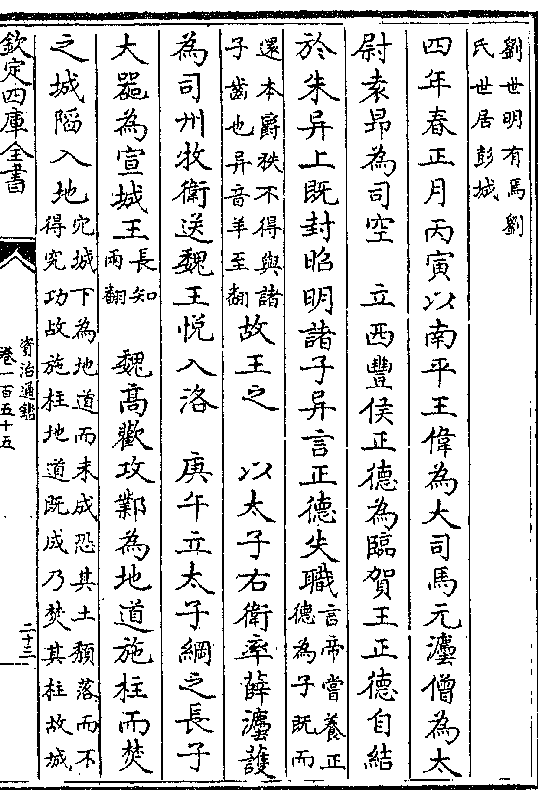 劉世明有焉劉
氏世居彭城
四年春正月丙寅以南平王偉為大司馬元灋僧為太
尉袁昂為司空　立西豐侯正德為臨賀王正德自結
於朱异上既封昭明諸子异言正德失職
言帝嘗養正
德為子既而
還本爵秩不得與諸
子齒也异音羊至翻
故王之　以太子右衛率薛灋護
為司州牧衛送魏王悦入洛　庚午立太子綱之長子
大器為宣城王
長知
兩翻
魏高歡攻鄴為地道施柱而焚
之城陷入地
穴城下為地道而未成恐其土頽落而不
得究功故施柱地道既成乃焚其柱故城
欽定四庫全書
資治通鑑
卷一百五十五
二十三